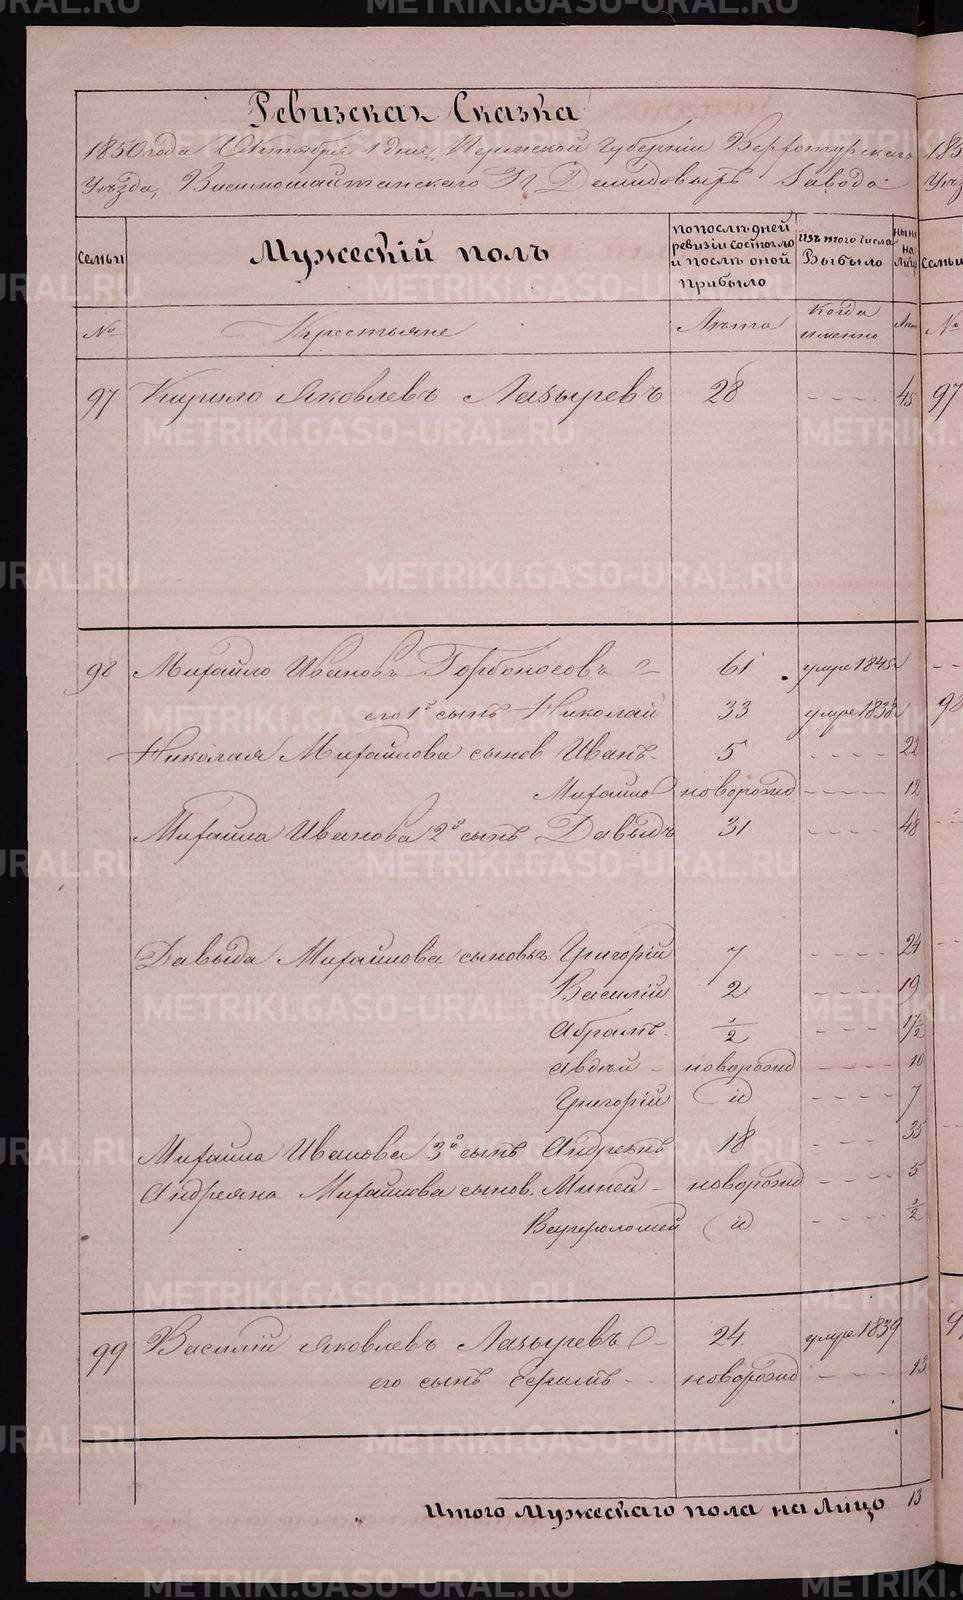 Ревизская Сказка
1850 года Октября 1 дня, Пермской Губерніи Верхотурскаго
Уѣзда, Висимошайтанскаго Н Демидовыхъ Завода
Семьи
Мужескій полъ
по последней ревизіи состояло и послѣ оной прибыло
Изъ того числа Выбыло
ныне на лицо
№
Крестьяне
Лѣта
Когда именно
Лѣт
97 Кирило Яковлевъ Лазыревъ 28 - - - - 45
98 Михайло Ивановъ Горбоносовъ 61 умре 1845
его 1й сынъ Николай 33 умре 1838
Николая Михайлова сынов Иванъ 5 - - - - 22
Михайло новорожд - - - - 12
Михаила Иванова 2й сынъ Давыдъ 31 - - - - 48
Давыда Михайлова сыновья Григорій 7 - - - - 24
Василій 2 - - - - 19
Абрамъ 1/2 - - - - 17 1/2
Авдѣй новорожд - - - - 10
Григорій и - - - - 7
Михаила Иванова 3й сынъ Андреянъ 18 - - - - 35
Андреяна Михайлова сынов. Миней новорожд - - - - 5
Варфоломей и - - - - 1/2
99 Василій Яковлевъ Лазыревъ 24 умре 1839
его сынъ Ефимъ новорожд - - - - 13
Итого Мужескаго пола на Лицо 13
183
Уѣз
Семьи
№
97
98
METRIKI.GASO-URAL.RU